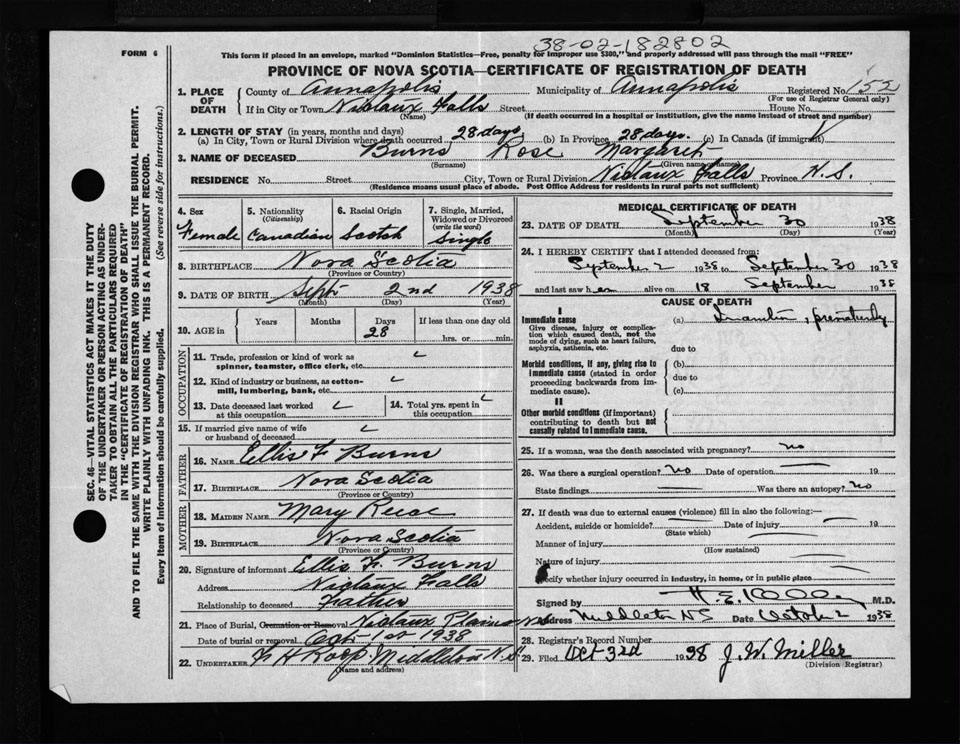 38-02-182802
FORM 6
This form if placed in an envelope, marked "Dominion Statistics—Free, penalty for improper use $300," and properly addressed will pass through the mail "FREE"
PROVINCE OF NOVA SCOTIA—CERTIFICATE OF REGISTRATION OF DEATH
1. PLACE OF DEATH
County of Annapolis Municipality of Annapolis Registered No. 152
(For use of Registrar General only)
If in City or Town Nictaux Falls Street House No.
(Name) (If death occurred in a hospital or institution, give the name instead of street and number)
2. LENGTH OF STAY (in years, months and days)
(a) In City, Town or Rural Division where death occurred 28 days (b) In Province 28 days. (c) In Canada (if immigrant)
3. NAME OF DECEASED Burns Rose Margaret
(Surname) (Given name or names)
RESIDENCE No. Street City, Town or Rural Division Nictaux Falls Province N.S.
(Residence means usual place of abode. Post Office Address for residents in rural parts not sufficient)
4. Sex
Female
5. Nationality
(Citizenship)
Canadian
6. Racial Origin
Scotch
7. Single, Married,
Widowed or Divorced
(write the word)
Single
8. BIRTHPLACE Nova Scotia
(Province or Country)
9. DATE OF BIRTH Sept. 2nd 1938
(Month) (Day) (Year)
10. AGE in
Years Months Days If less than one day old
28 hrs. or min.
OCCUPATION
11. Trade, profession or kind of work as
spinner, teamster, office clerk, etc.
12. Kind of industry or business, as cotton-
mill, lumbering, bank, etc.
13. Date deceased last worked
at this occupation
14. Total yrs. spent in
this occupation
15. If married give name of wife
or husband of deceased
FATHER
16. NAME Ellis F Burns
17. BIRTHPLACE Nova Scotia
(Province or Country)
MOTHER
18. MAIDEN NAME Mary
19. BIRTHPLACE Nova Scotia
(Province or Country)
20. Signature of informant Ellis F. Burns
Address Nictaux Falls
Relationship to deceased Father
21. Place of Burial, Cremation or Removal Nictaux Plains N.S.
Date of burial or removal Oct 1st 1938
22. UNDERTAKER F H Roop Middleton N.S
(Name and address)
MEDICAL CERTIFICATE OF DEATH
23. DATE OF DEATH September 30 1938
(Month) (Day) (Year)
24. I HEREBY CERTIFY that I attended deceased from:
September 2 1938 to September 30 1938
and last saw her alive on 18 September 1938
CAUSE OF DEATH
Immediate cause
Give disease, injury or complica-
tion which caused death, not the
mode of dying, such as heart failure,
asphyxia, asthenia, etc.
(a) Inanition, prematurity
due to
Morbid conditions, if any, giving rise to
immediate cause (stated in order
proceeding backwards from im-
mediate cause).
(b)
due to
(c)
II
Other morbid conditions (if important)
contributing to death but not
causally related to immediate cause.
25. If a woman, was the death associated with pregnancy? no
26. Was there a surgical operation? no Date of operation 19
State findings Was there an autopsy? no
27. If death was due to external causes (violence) fill in also the following:—
Accident, suicide or homicide? Date of injury 19
(State which)
Manner of injury
(How sustained)
Nature of injury
Specify whether injury occurred in industry, in home, or in public place
Signed by M.D.
Address Middleton NS Date October 2 1938
28. Registrar's Record Number
29. Filed Oct 3rd 1938 J. W. Miller
(Division Registrar)
SEC. 46—VITAL STATISTICS ACT MAKES IT THE DUTY
OF THE UNDERTAKER OR PERSON ACTING AS UNDER-
TAKER TO OBTAIN ALL THE PARTICULARS REQUIRED
IN THE "CERTIFICATE OF REGISTRATION OF DEATH"
AND TO FILE THE SAME WITH THE DIVISION REGISTRAR WHO SHALL ISSUE THE BURIAL PERMIT.
WRITE PLAINLY WITH UNFADING INK. THIS IS A PERMANENT RECORD.
Every item of information should be carefully supplied. (See reverse side for instructions.)